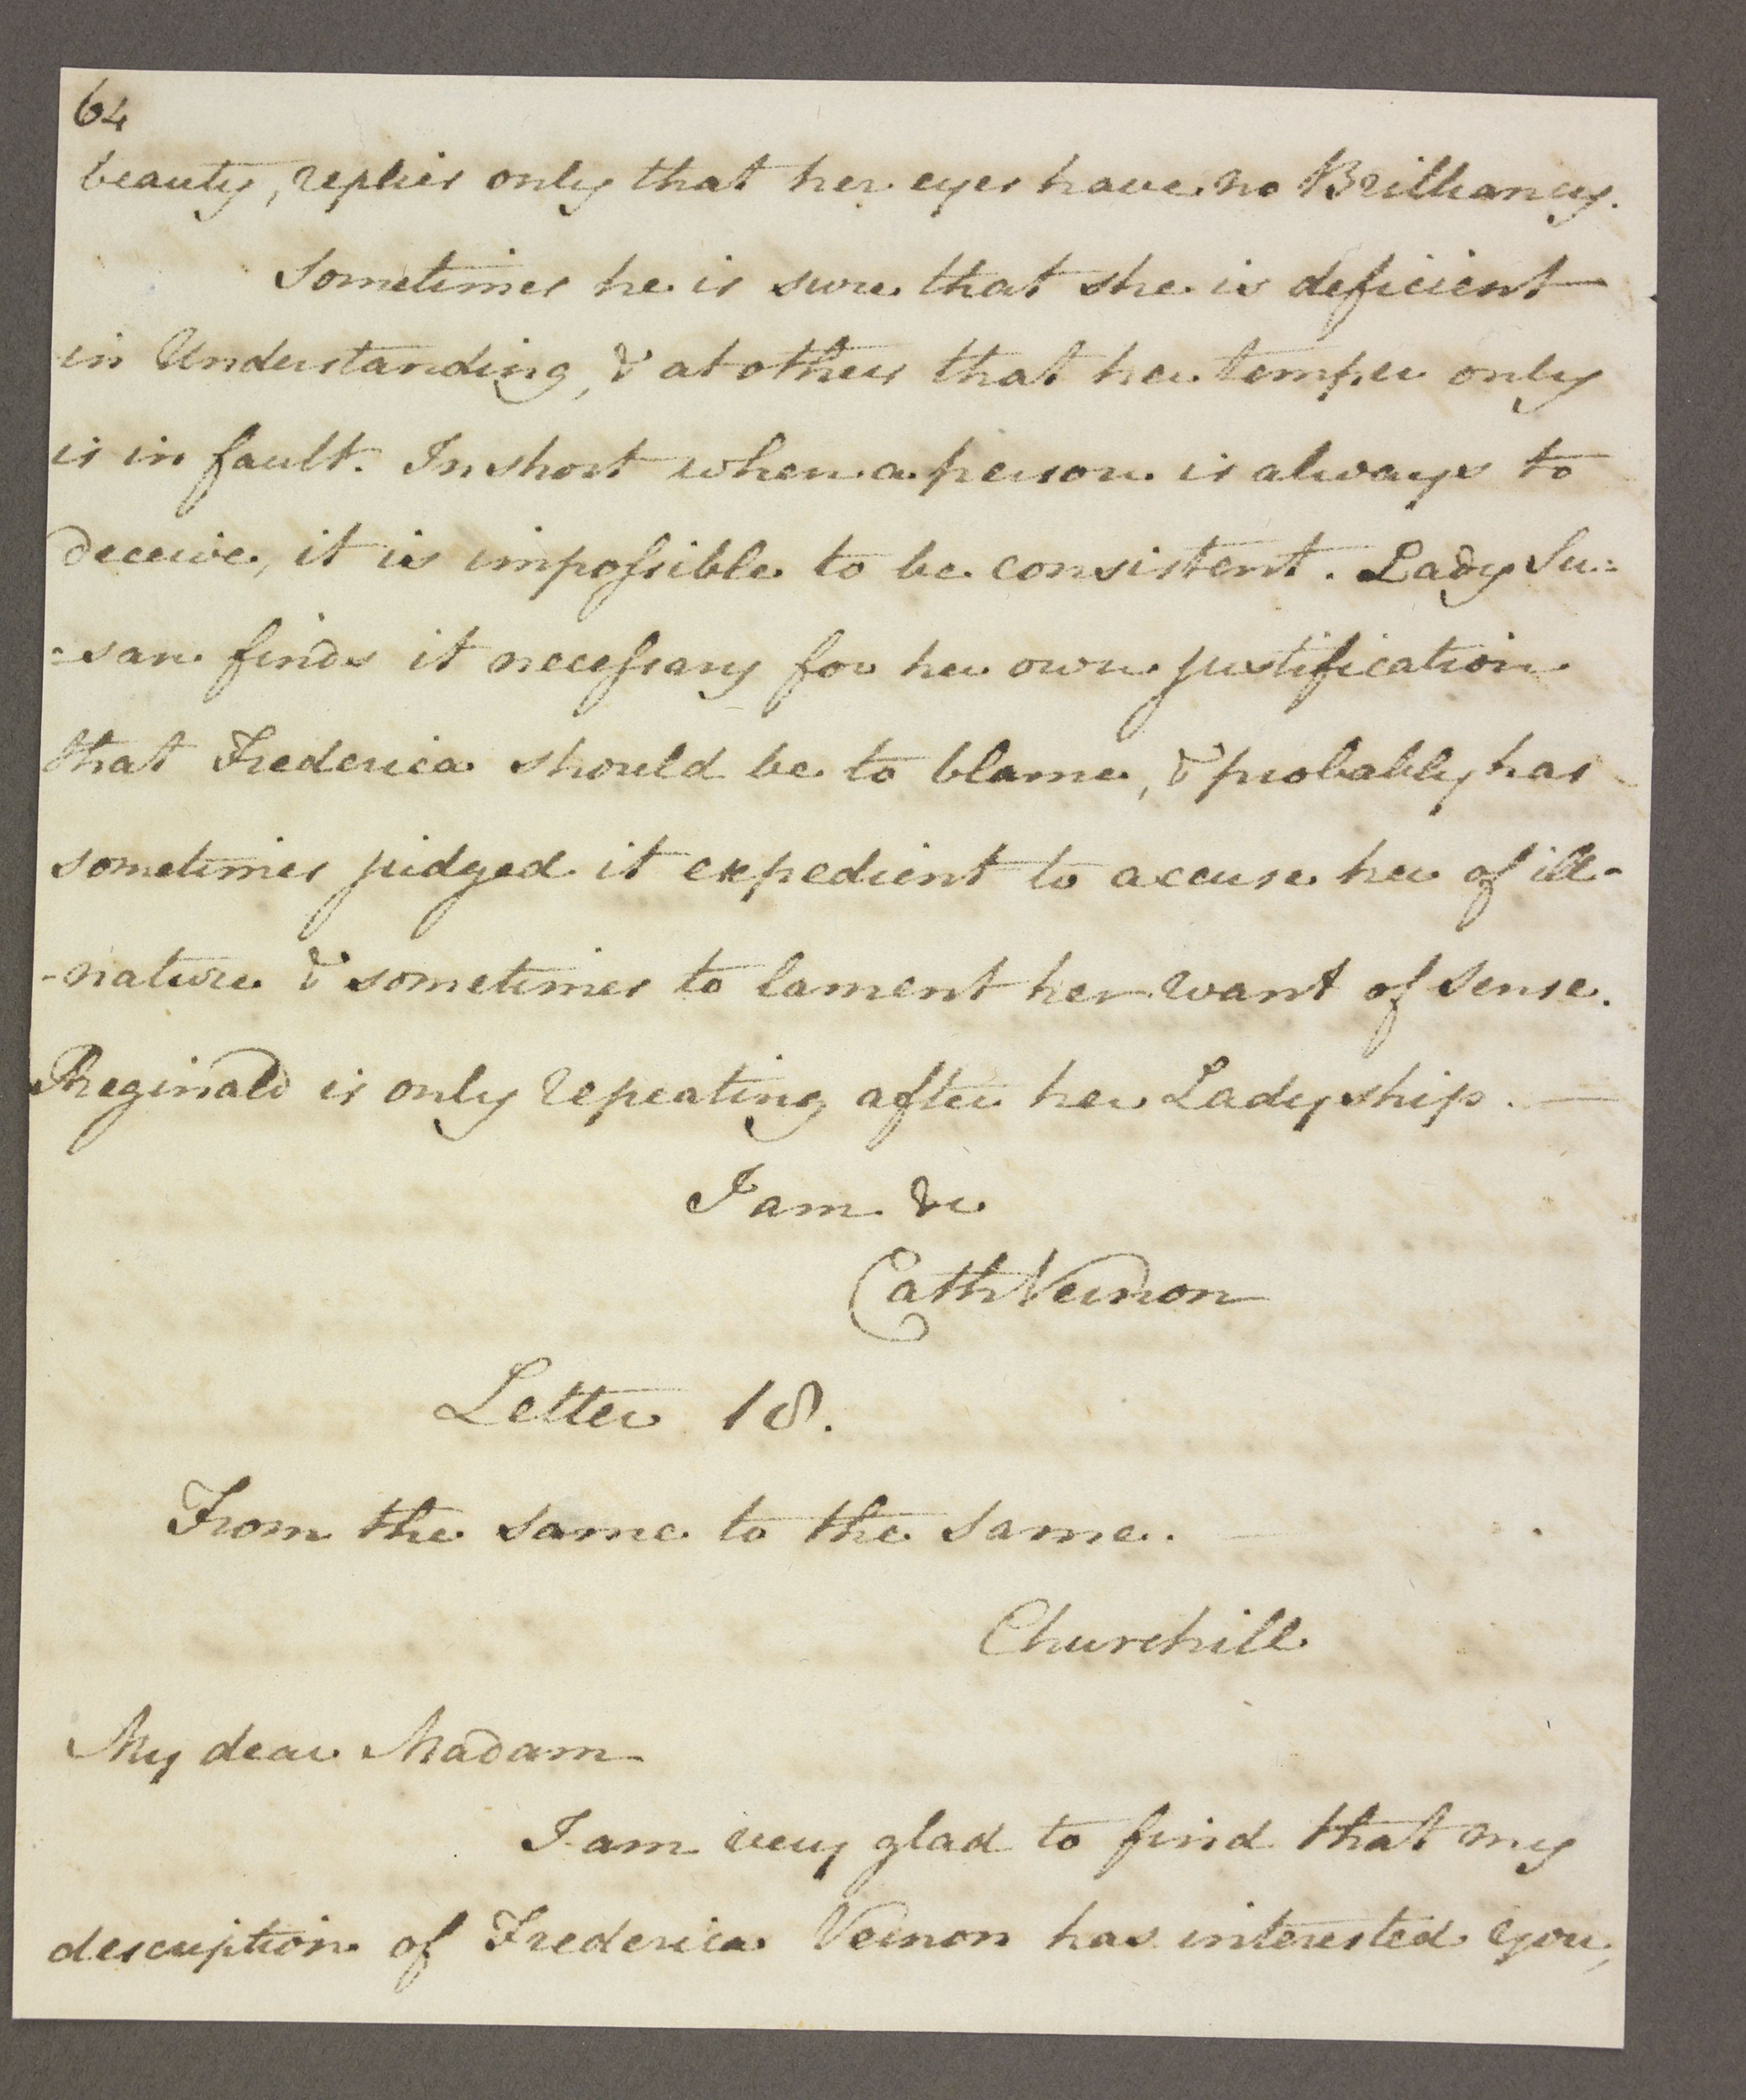 64
beauty, replies only that her eyes have no Brilliancy.
Sometimes he is sure that she is deficient
in Understanding, & at others that her temper only
is in fault. In short when a person is always to
deceive, it is impossible to be consistent. Lady Su:
:san finds it necessary for her own justification
that Frederica should be to blame, & probably has
sometimes judged it expedient to accuse her of ill-
-nature & sometimes to lament her want of sense.
Reginald is only repeating after her Ladyship. —
I am &c
Cath Vernon
Letter 18.
From the same to the same.
Churchill
My dear Madam
I am very glad to find that my
description of Frederica Vernon has interested you,